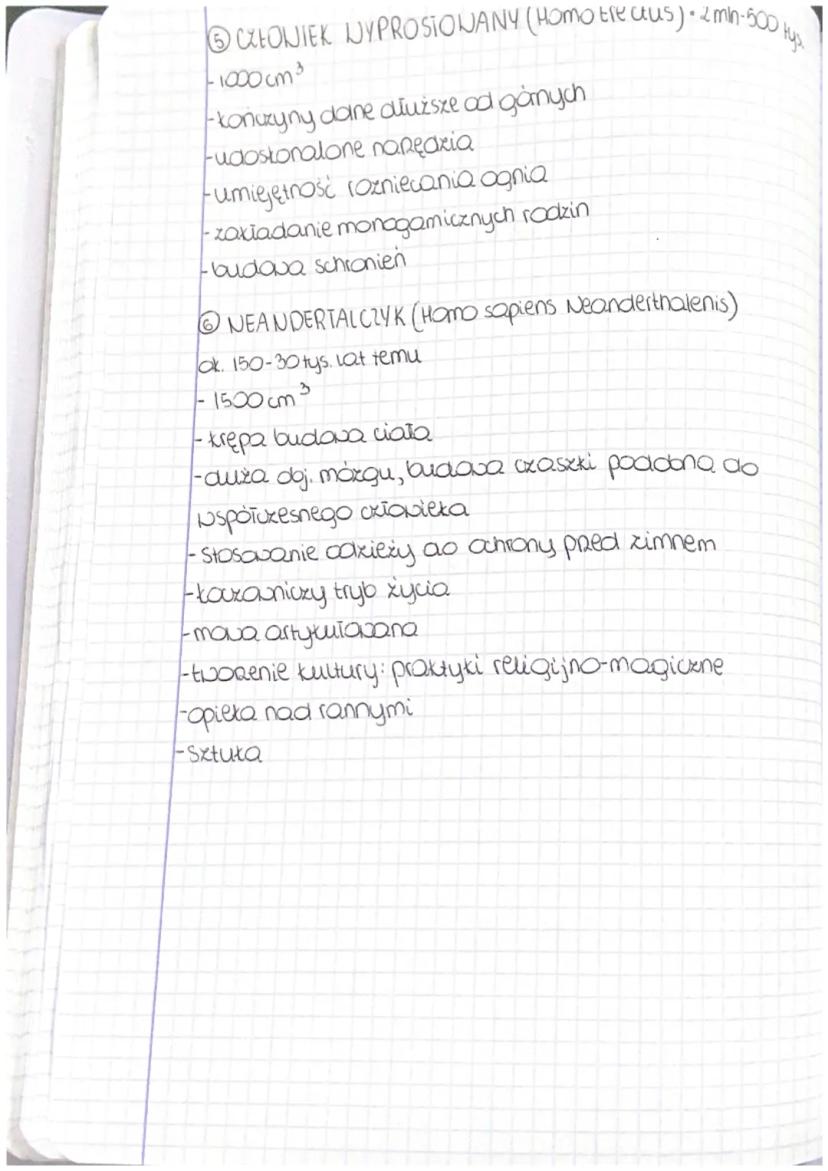 ⑤ CZŁOWIEK WYPROSTOWANY (Homo Erectus) • 2 mln-500 tys.
- 1000 cm³
- kończyny dolne dłuższe od górnych
- udoskonalone narzędzia
- umiejętność rozniecania ognia
- zakładanie monogamicznych rodzin
- budowa schronień
⑥ NEANDERTALCZYK (Homo sapiens Neanderthalenis)
ok. 150-30 tys. lat temu
- 1500 cm³
- krępa budowa ciała
- duża obj. mózgu, budowa czaszki podobna do
współczesnego człowieka
- Stosowanie odzieży do ochrony przed zimnem
- łowczowniczy tryb życia
- mowa artykułowana
- tworzenie kultury: praktyki religijno-magiczne
- opieka nad rannymi
- Sztuka